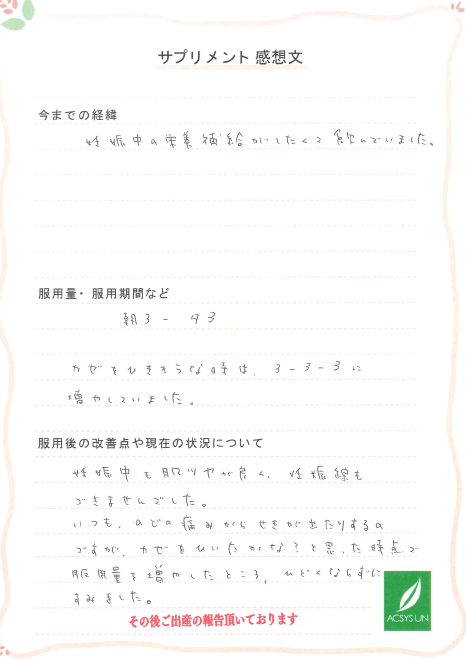 サプリメント 感想文
今までの経緯
妊娠中の栄養補給がしたくて飲んでいました。
服用量・服用期間など
朝3 - 夕3
カゼをひきそうな時は、3-3-3に
増やしていました。
服用後の改善点や現在の状況について
妊娠中も肌ツヤが良く、妊娠線も
できませんでした。
いつも、のどの痛みからせきが出たりするの
ですが、カゼをひいたかな?と思った時点で
服用量を増やしたところ、ひどくならずに
すみました。
その後ご出産の報告頂いております
ACSYSUN